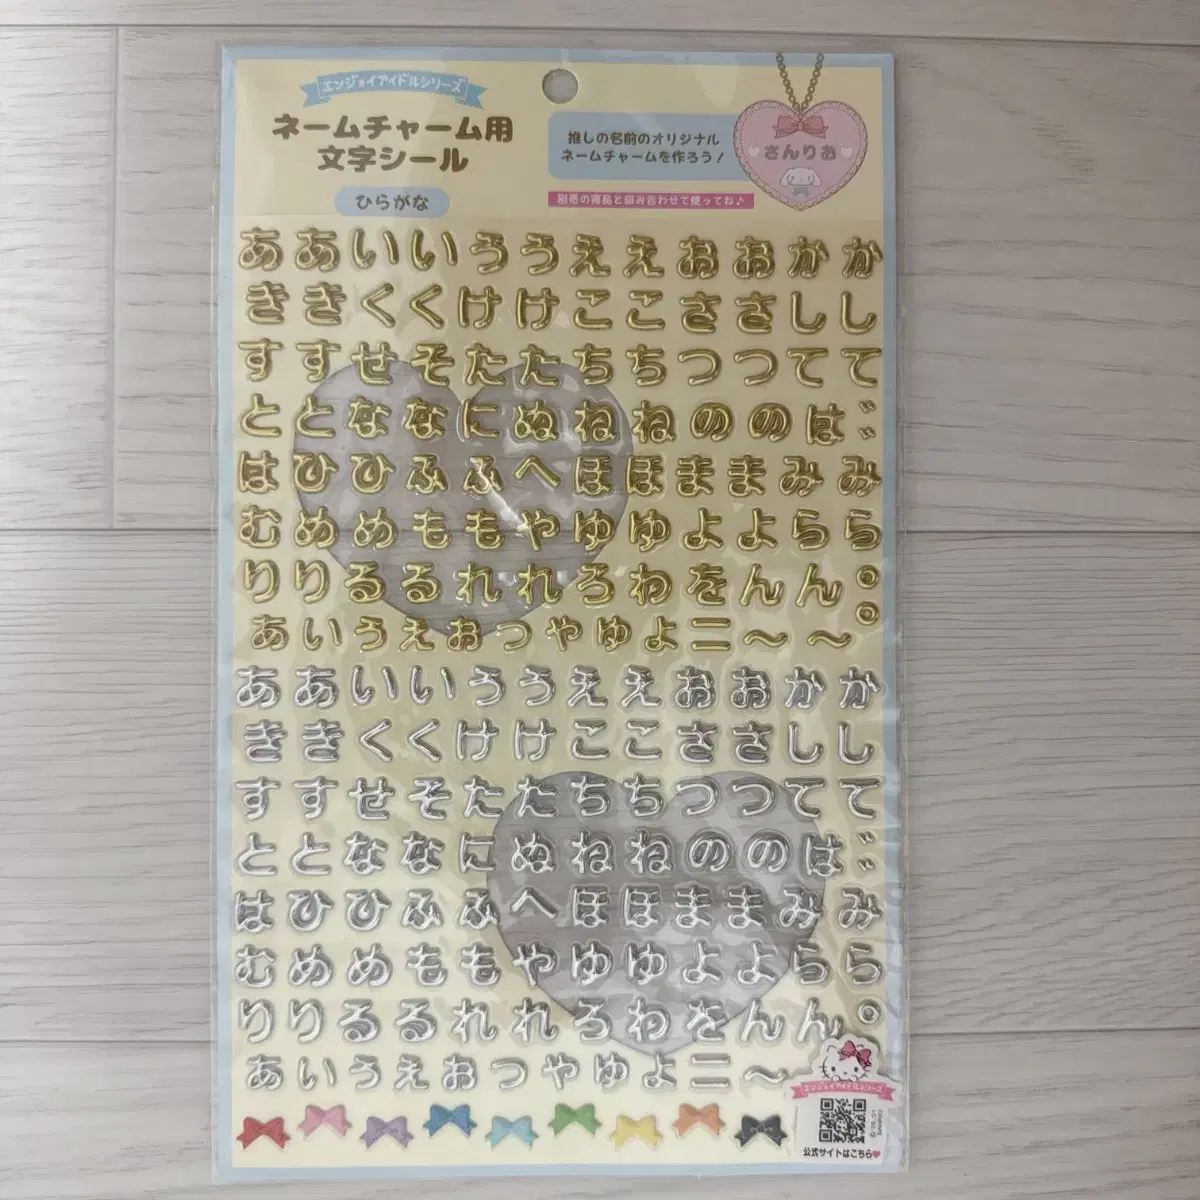 エンジョイアイドルシリーズ
ネームチャーム用
文字シール
ひらがな
推しの名前のオリジナル
ネームチャームを作ろう！
別売の商品と組み合わせて使ってね♪
さんりお
ああいいううええおおかか
ききくくけけここささしし
すすせそたたちちつつてて
ととななにぬねねののは゛
はひひふふへほほままみみ
むめめももやゆゆよよらら
りりるるれれろわをんん゜
あいうえおつやゆよ二〜〜゜
ああいいううええおおかか
ききくくけけここささしし
すすせそたたちちつつてて
ととななにぬねねののは゛
はひひふふへほほままみみ
むめめももやゆゆよよらら
りりるるれれろわをんん゜
あいうえおつやゆよ二〜
エンジョイアイドルシリーズ
公式サイトはこちら♥